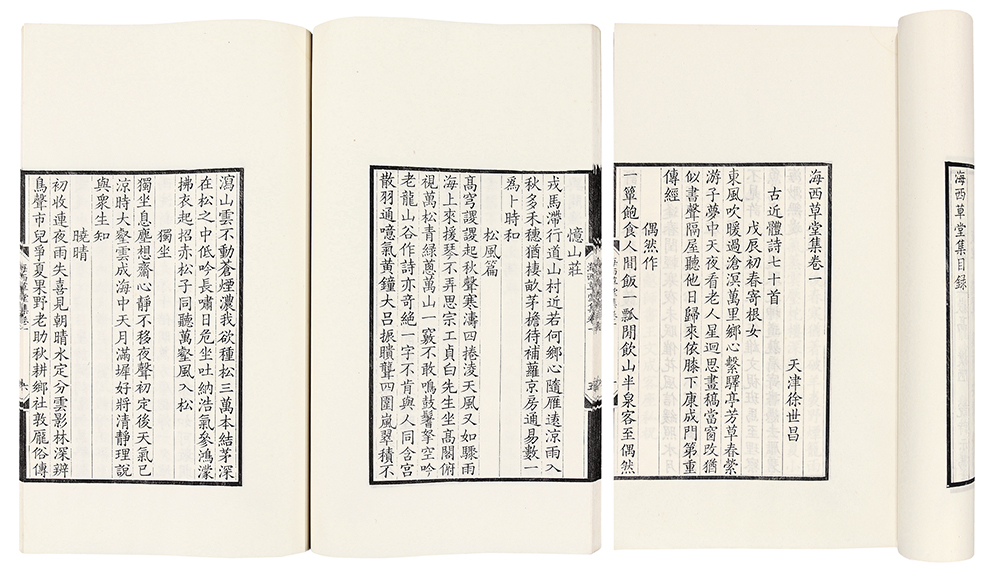 海西草堂集目録
海西草堂集卷一
天津徐世昌
古近體詩七十首
戊辰初春寄根女
東風吹暖過滄溟萬里鄉心繫驛亭芳草春縈
游子夢中天夜看老人星迴思畫稿當窗改猶
似書聲隔屋聽他日歸來依膝下康成門第重
傳經
偶然作
一簞飽食人閒飯一瓢閒飲山半泉客至偶然
憶山莊
戎馬滯行道山村近若何鄉心隨雁遠涼雨入
秋多禾穗猶棲畝茅檐待補蘿京房通易數一
爲卜時和
松風篇
高穹謖謖起秋聲寒濤四捲淩天風又如驟雨
海上來援琴不弄思宗工貞白先生坐高閣俯
視萬松青緑蔥萬山一竅不敢鳴鼓鬐拏空吟
老龍山谷作詩亦奇絕一字不肯與人同含宫
散羽通噫氣黄鐘大吕振聵聾四圍嵐翠積不
瀉山雲不動蒼煙濃我欲種松三萬本結茅深
在松之中低吟長嘯日危坐吐納浩氣參鴻濛
拂衣起招赤松子同聽萬壑風入松
獨坐
獨坐息塵想齋心靜不移夜聲初定後天氣已
涼時大壑雲成海中天月滿墀好將清靜理說
與衆生知
曉晴
初收連夜雨失喜見朝晴水定分雲影林深辨
鳥聲市兒爭夏果野老助秋耕鄉社敦龐俗傳